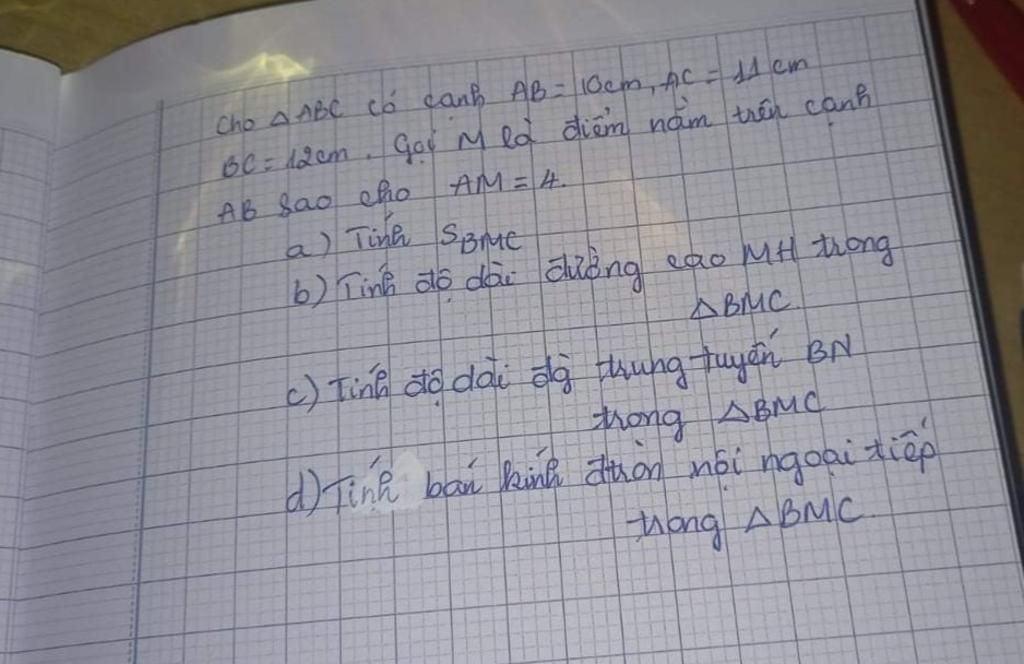 Cho △ABC có cạnh AB = 10cm, AC = 11cm
BC = 12cm. Gọi M là điểm nằm trên cạnh
AB sao cho AM = 4.
a) Tính SBMC
b) Tính độ dài đường cao MH trong
△BMC.
c) Tính độ dài đg trung tuyến BN
trong △BMC
d) Tính bán kính đtròn nội ngoại tiếp
trong △BMC.